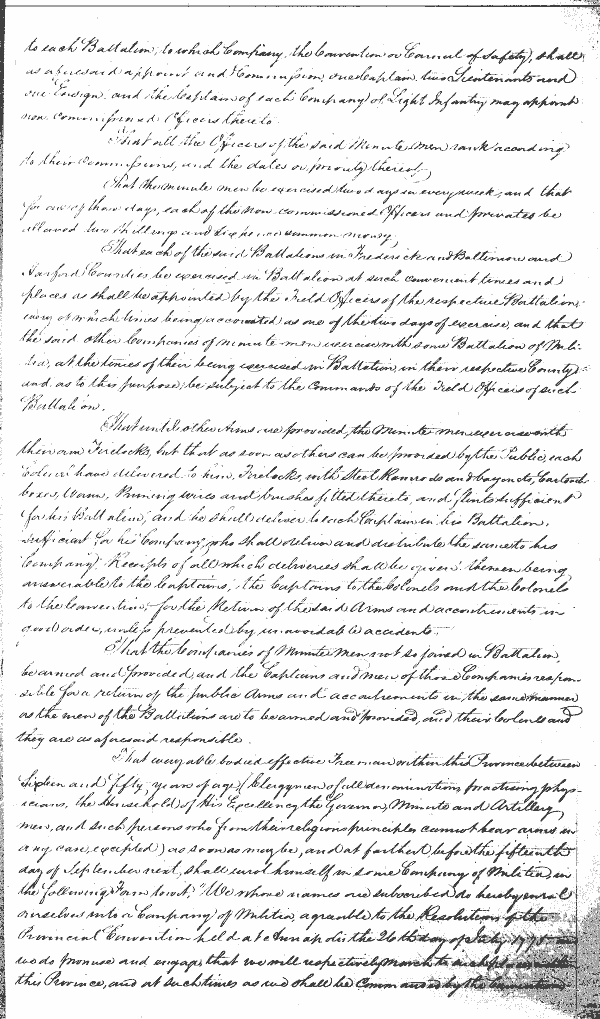 to each Battalion, to which Company, the Convention or Council of Safety, shall
as aforesaid appoint and Commission one Captain two Lieutenants and
one Ensign and the Captain of each Company of Light Infantry may appoint
non commissioned Officers thereto.
That all the Officers of the said Minute Men rank according
to their Commissions, and the dates or priority thereof,
That the minute men be exercised two days in every week, and that
for one of those days, each of the non commissioned Officers and privates be
allowed two shillings and six pence common money,
That each of the said Battalions in Frederick and Baltimore and
Harford Counties be exercised in Battalion at such convenient times and
places as shall be appointed by the Field Officers of the respective Battalion,
every of which times being accounted as one of the two days of exercise, and that
the said other Companies of minute men exercise with some Battalion of Mili-
tia, at the times of their being exercised in Battalion, in their respective County
and as to this purpose, be subject to the Commands of the Field Officers of such
Battalion.
That until other Arms are provided, the Minute men exercise with
their own Firelocks, but that as soon as others can be provided by the Public, each
Colonel have delivered to him, Firelocks, with Steel Ramrods and bayonets, Cartouch
boxes, Worms, Priming wires and brushes fitted thereto, and flints sufficient
for his Battalion, and he shall deliver to each Captain in his Battalion,
sufficient for his Company, who shall deliver and distribute the same to his
Company. Receipts of all which deliveries shall be given the men being
answerable to the Captains, the Captains to the Colonels and the Colonels
to the Convention, for the Return of the said Arms and accoutrements in
good order, unless prevented by unavoidable accidents.
That the Companies of Minute Men not so joined in Battalion,
be armed and provided, and the Captains and men of those Companies respon-
sible for a return of the public Arms and accoutrements in the same manner
as the men of the Battalions are to be armed and provided, and their Colonels and
they are as aforesaid responsible.
That every able bodied effective Freeman within this Province between
Sixteen and fifty years of age (Clergymen of all denominations, practising phys-
icians, the Household of His Excellency the Governor, Minute and Artillery
men, and such persons who from their religious principles cannot bear arms in
any case, excepted) as soon as may be, and at farthest before the fifteenth
day of September next, shall enrol himself in some Company of Militia, in
the following Form to wit, "We whose names are subscribed do hereby enrol
ourselves into a Company of Militia, agreable to the Resolutions of the
Provincial Convention held at Annapolis the 26th day of July 1775 and
we do promise and engage, that we will respectively march to such places within
this Province, and at such times as we shall be Commanded by the Convention